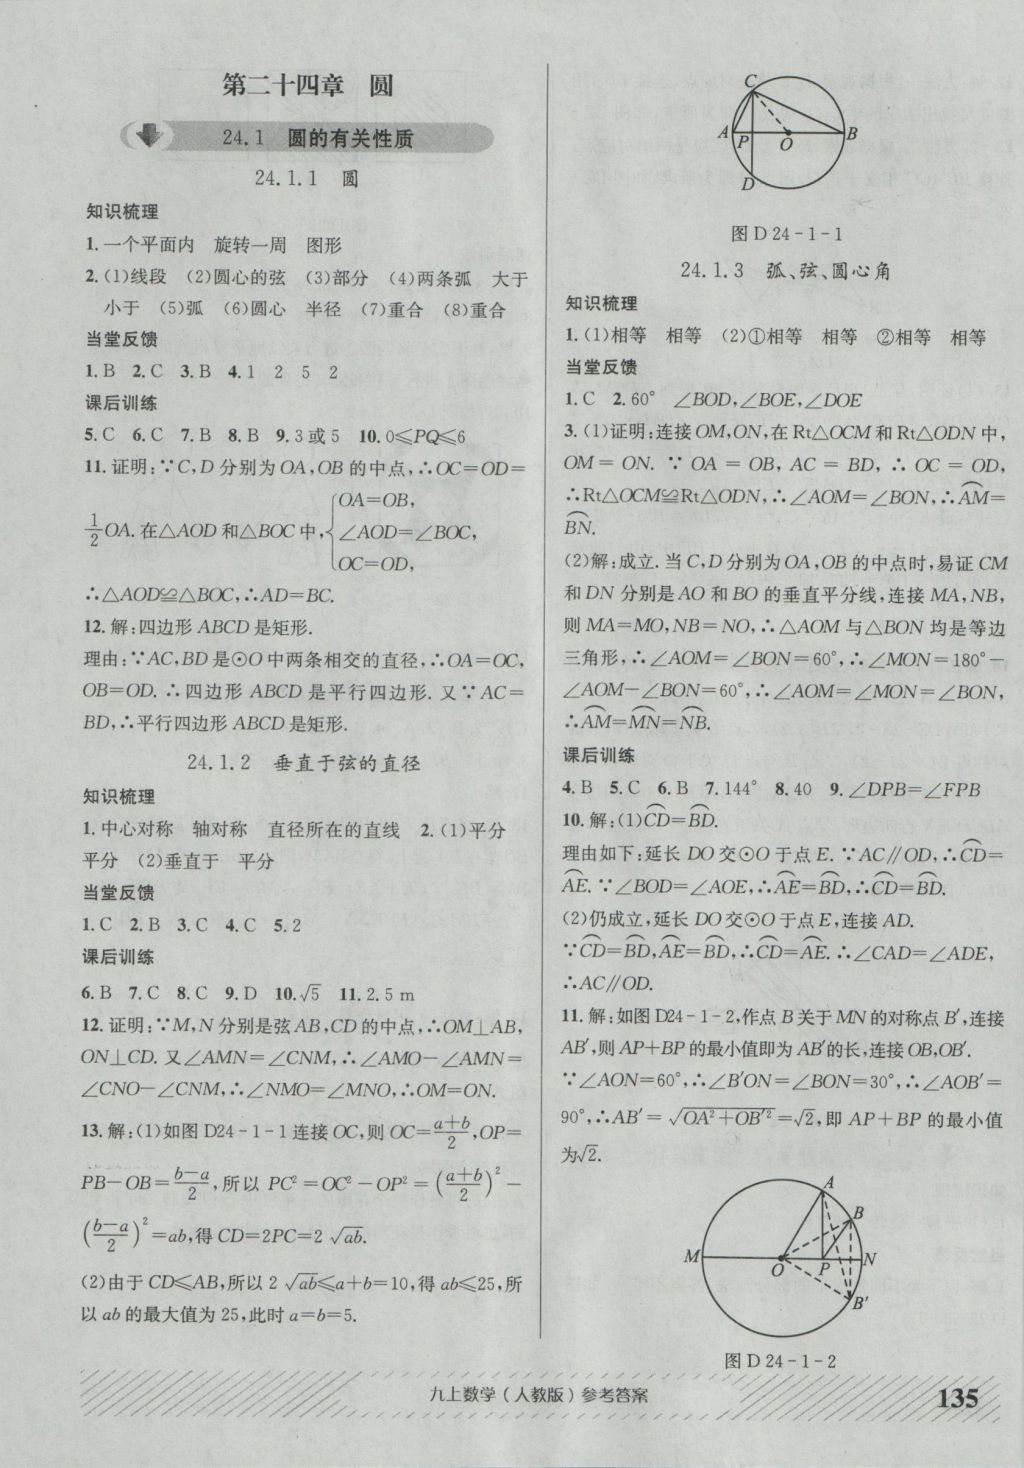 第二十四章　圆
24.1　圆的有关性质
24.1.1　圆
知识梳理
1.一个平面内　旋转一周　图形
2.(1)线段　(2)圆心的弦　(3)部分　(4)两条弧　大于
小于　(5)弧　(6)圆心　半径　(7)重合　(8)重合
当堂反馈
1.B　2.C　3.B　4.1　2　5　2
课后训练
5.C　6.C　7.B　8.B　9.3或5　10.0≤PQ≤6
11.证明:∵C,D分别为OA,OB的中点,∴OC=OD=
1/2 OA.在△AOD和△BOC中,{OA=OB,
∠AOD=∠BOC,
OC=OD,
∴△AOD≌△BOC,∴AD=BC.
12.解:四边形ABCD是矩形.
理由:∵AC,BD是⊙O中两条相交的直径,∴OA=OC,
OB=OD.∴四边形ABCD是平行四边形.又∵AC=
BD,∴平行四边形ABCD是矩形.
24.1.2　垂直于弦的直径
知识梳理
1.中心对称　轴对称　直径所在的直线　2.(1)平分
平分　(2)垂直于　平分
当堂反馈
1.C　2.B　3.C　4.C　5.2
课后训练
6.B　7.C　8.C　9.D　10.√5　11.2.5 m
12.证明:∵M,N分别是弦AB,CD的中点,∴OM⊥AB,
ON⊥CD.又∠AMN=∠CNM,∴∠AMO-∠AMN=
∠CNO-∠CNM,∴∠NMO=∠MNO,∴OM=ON.
13.解:(1)如图D24-1-1连接OC,则OC=(a+b)/2,OP=
PB-OB=(b-a)/2,所以PC²=OC²-OP²=((a+b)/2)²-
((b-a)/2)²=ab,得CD=2PC=2√ab.
(2)由于CD≤AB,所以2√ab≤a+b=10,得ab≤25,所
以ab的最大值为25,此时a=b=5.
C
A　P　O　B
D
图D24-1-1
24.1.3　弧、弦、圆心角
知识梳理
1.(1)相等　相等　(2)①相等　相等　②相等　相等
当堂反馈
1.C　2.60°　∠BOD,∠BOE,∠DOE
3.(1)证明:连接OM,ON,在Rt△OCM和Rt△ODN中,
OM=ON.∵OA=OB,AC=BD,∴OC=OD,
∴Rt△OCM≌Rt△ODN,∴∠AOM=∠BON,∴A͡M=
B͡N.
(2)解:成立.当C,D分别为OA,OB的中点时,易证CM
和DN分别是AO和BO的垂直平分线,连接MA,NB,
则MA=MO,NB=NO,∴△AOM与△BON均是等边
三角形,∴∠AOM=∠BON=60°,∴∠MON=180°-
∠AOM-∠BON=60°,∴∠AOM=∠MON=∠BON,
∴A͡M=M͡N=N͡B.
课后训练
4.B　5.C　6.B　7.144°　8.40　9.∠DPB=∠FPB
10.解:(1)C͡D=B͡D.
理由如下:延长DO交⊙O于点E.∵AC∥OD,∴C͡D=
A͡E.∵∠BOD=∠AOE,∴A͡E=B͡D,∴C͡D=B͡D.
(2)仍成立,延长DO交⊙O于点E,连接AD.
∵C͡D=B͡D,A͡E=B͡D,∴C͡D=A͡E.∴∠CAD=∠ADE,
∴AC∥OD.
11.解:如图D24-1-2,作点B关于MN的对称点B′,连接
AB′,则AP+BP的最小值即为AB′的长,连接OB,OB′.
∵∠AON=60°,∴∠B′ON=∠BON=30°,∴∠AOB′=
90°,∴AB′=√(OA²+OB′²)=√2,即AP+BP的最小值
为√2.
A
B
M　O　P　N
B′
图D24-1-2
九上数学(人教版)参考答案
135